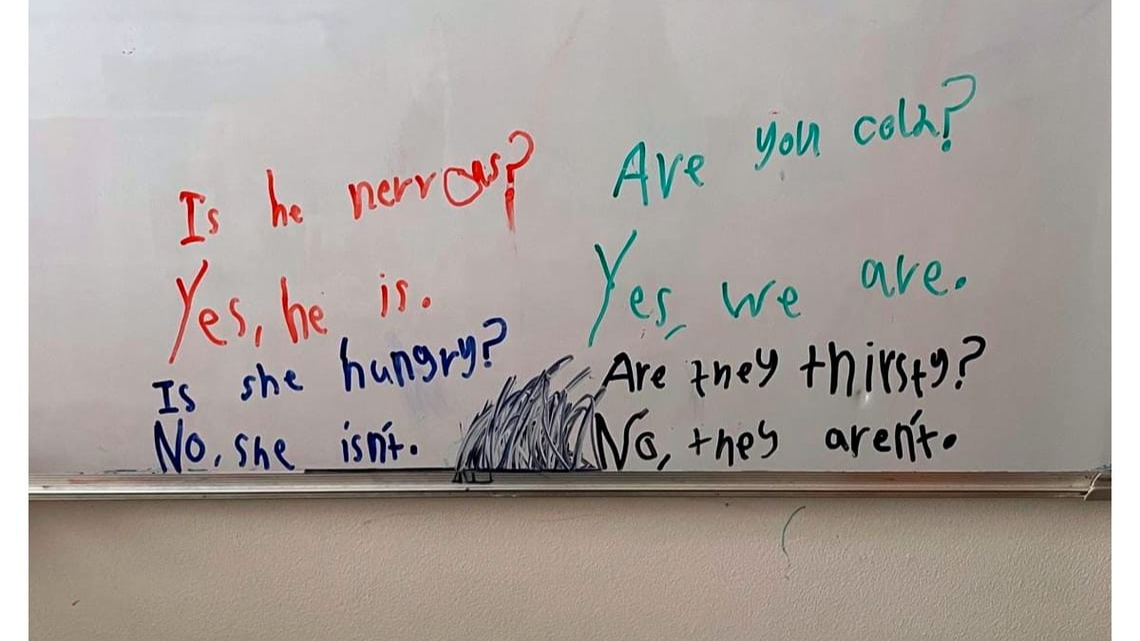 Is he nervous?
Yes, he is.
Is she hungry?
No, she isn't.
Are you cold?
Yes, we are.
Are they thirsty?
No, they aren't.